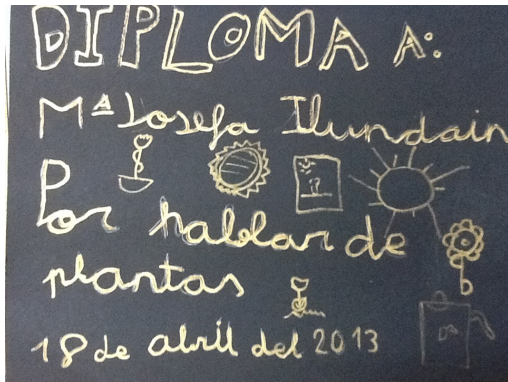 DIPLOMA A:
Mª Josefa Ilundain
Por hablar de
plantas
18 de abril del 2013